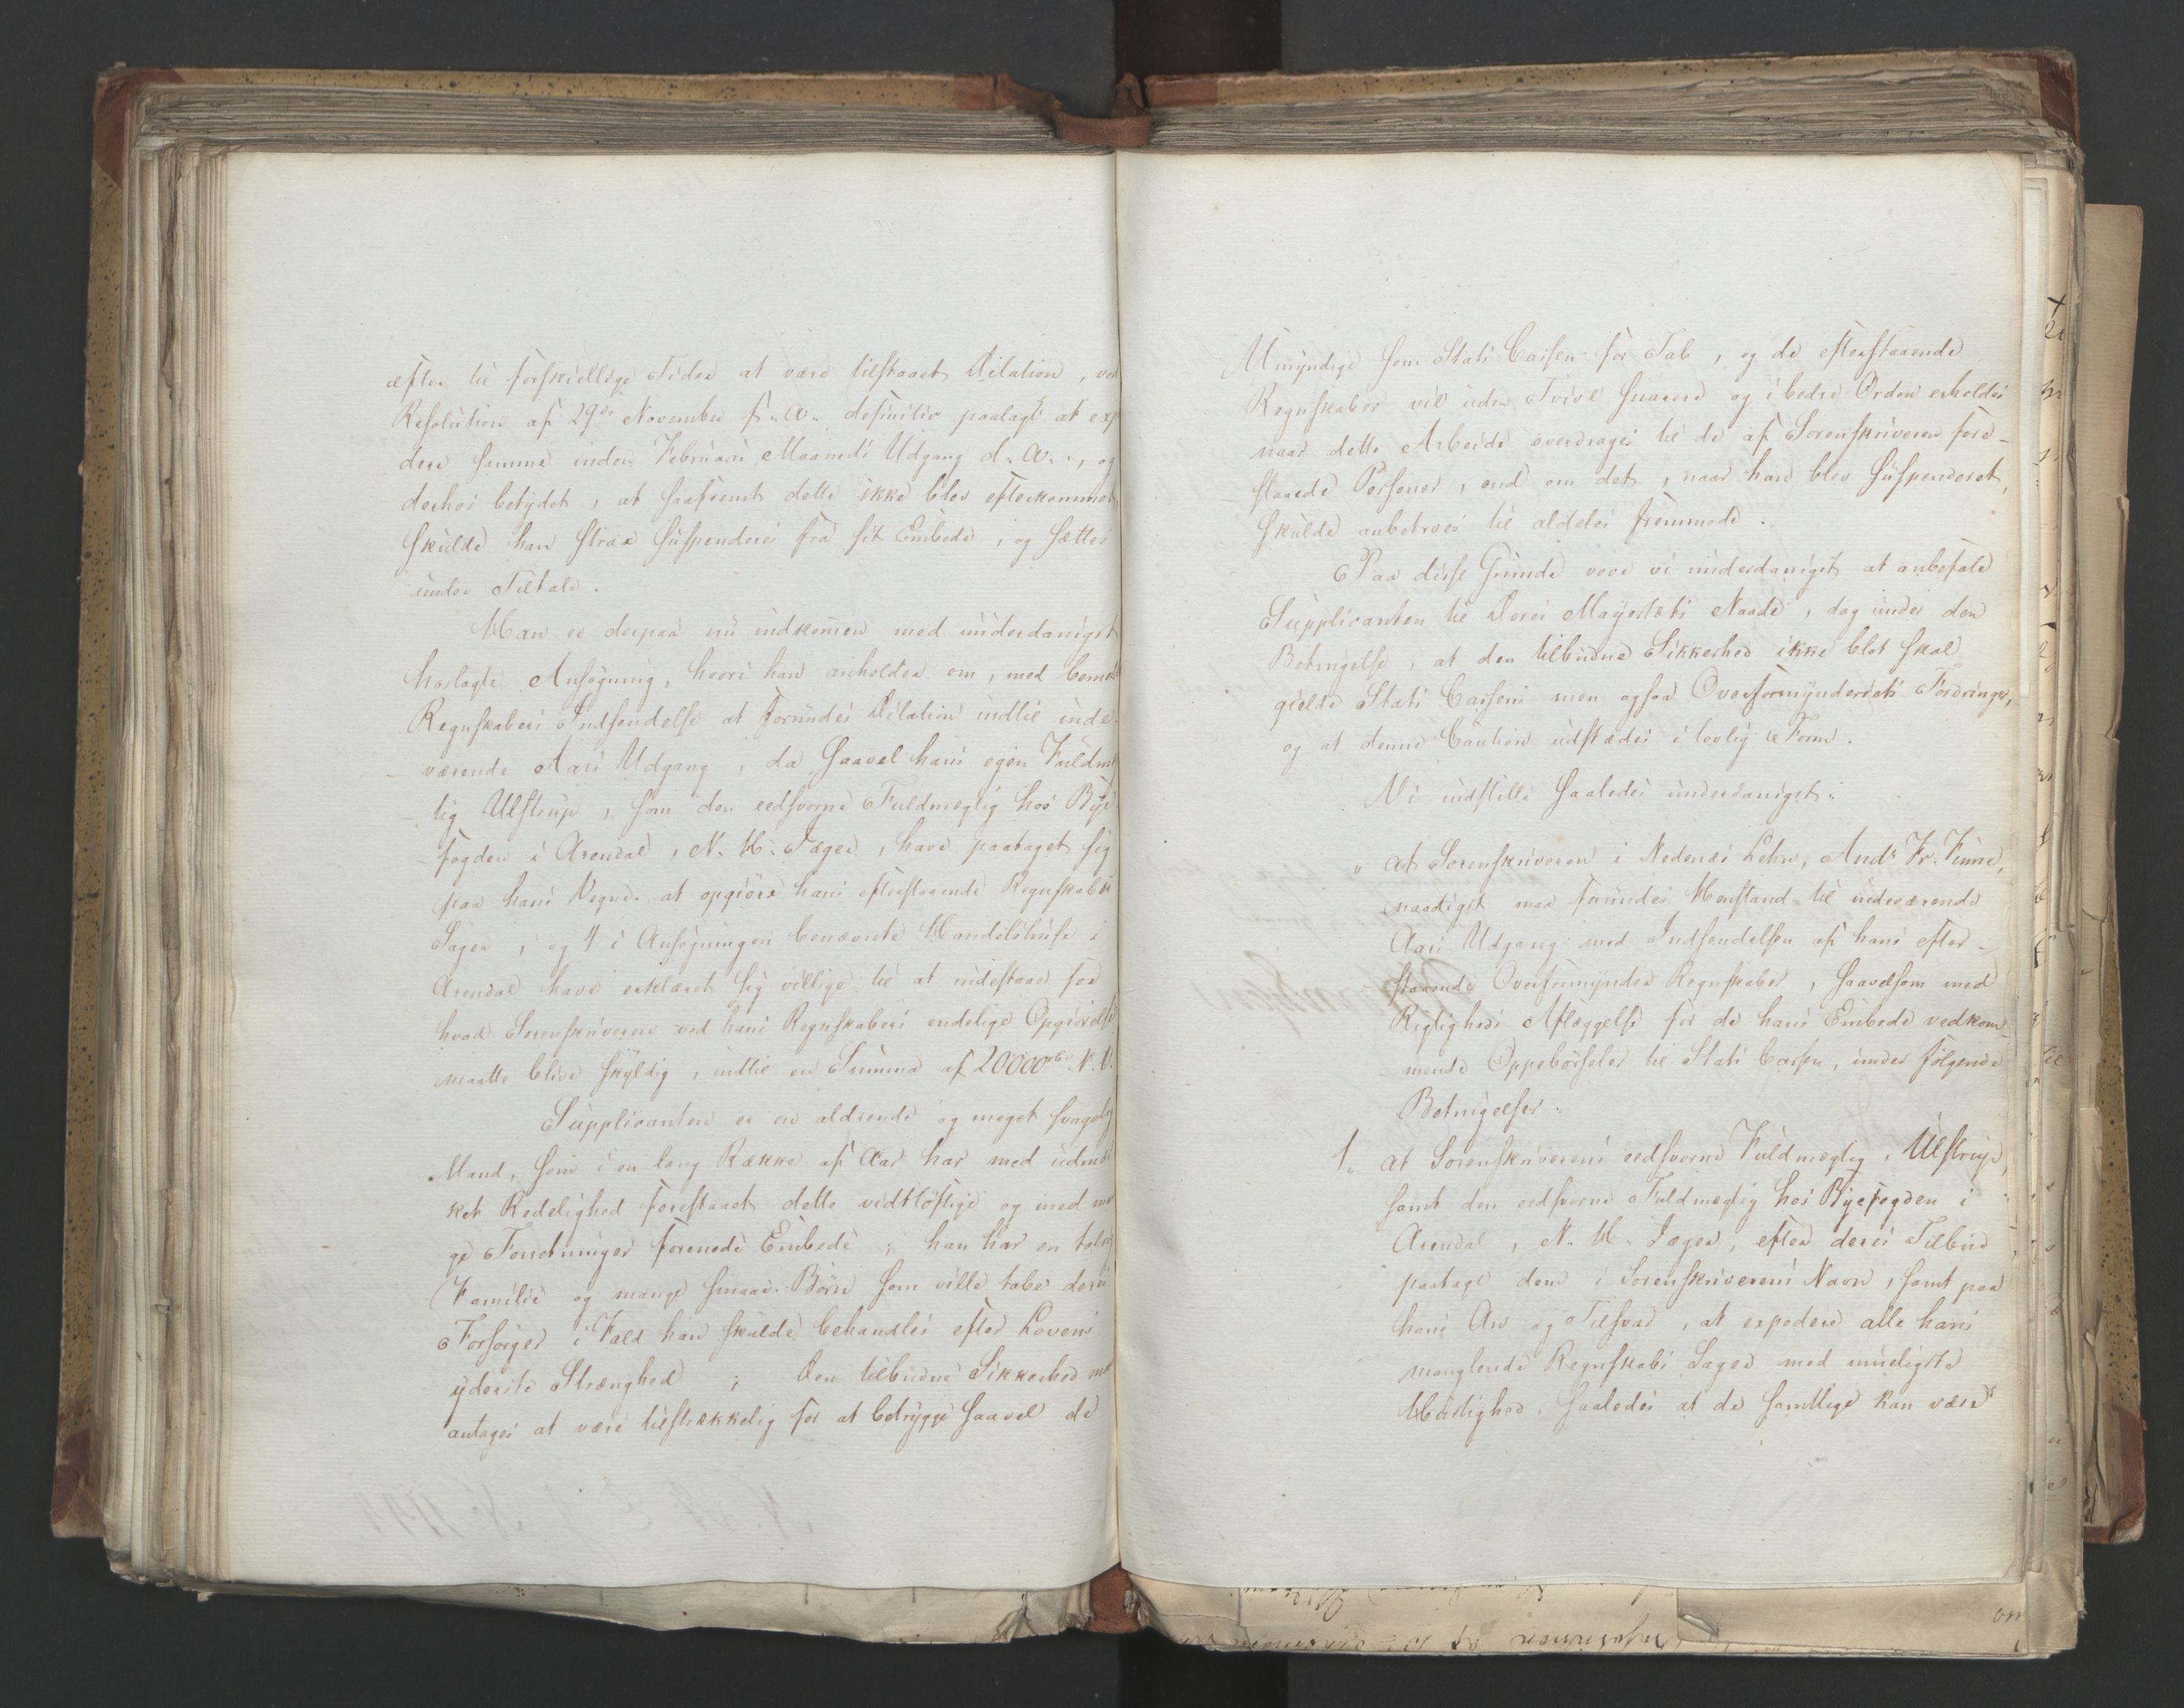 efter til forskiellige Tider at være tilstaaet Dilation, ved
Resolution af 29de November f. A. definitiv paalagt at exp
dere samme inden Februari Maaneds Udgang d. A., og
derhos betydet, at saafremt dette ikke blev efterkommet
skulde han strax suspenderes fra sit Embede, og sættes
under Tiltale.
Han er derpaa nu indkommen med underdanigst
hoslagte Ansøgning, hvori han anholder om, med bemeld
Regnskabers Indsendelse at forundes Dilation indtil inde-
værende Aars Udgang, da saavel hans egen Fuldmæg
tig Ulstrup, som den eedsvorne Fuldmægtig hos Bye-
fogden i Arendal, N. H. Jæger, have paataget sig
paa hans Vegne at opgiøre hans efterstaaende Regnskabs
Sager, og 4 i Ansøgningen benævnte Handelshuse i
Arendal have erklæret sig villige til at indestaae for
hvad Sorenskriveren ved hans Regnskabers endelige Opgiørelse
maatte blive skyldig, indtil en Summa af 20000 N.V.
Supplicanten er en aldrende og meget svagelig
Mand, som i en lang Række af Aar har med udmær
ket Redelighed forestaaet dette vidtløftige og med man
ge Forretninger forenede Embede; han har en talrig
Familie og mange smaae Børn som ville tabe deres
Forsørger i Fald han skulde behandles efter Lovens
yderste Strænghed; Den tilbudne Sikkerhed maa
antages at være tilstrækkelig for at betrygge saavel de
Umyndige som Stats Cassen for Tab, og de efterstaaende
Regnskaber vil uden Tvivl snarere og i bedre Orden erholdes
naar dette Arbeide overdrages til de af Sorenskriveren fore-
slaaede Personer, end om det, naar han blev suspenderet,
skulde anbetroes til aldeles fremmede.
Paa disse Grunde vove vi underdanigst at anbefale
Supplicanten til Deres Majestæts Naade, dog under den
Betingelse, at den tilbudne Sikkerhed ikke blot skal
gielde Stats Cassens men ogsaa Overformynderiets Fordringer,
og at denne Caution udstædes i lovlig Form.
Vi indstille saaledes underdanigst:
" at Sorenskriveren i Nedenæs Lehn, Andr. Fr. Finne,
naadigst maa forundes Henstand til indeværende
Aars Udgang med Indsendelsen af hans efter-
staaende Overformynder Regnskaber, saavelsom med
Rigtigheds Aflæggelse for de hans Embede vedkom-
mende Oppebørseler til Stats Cassen, under følgende
Betingelser:
1, at Sorenskriverens eedsvorne Fuldmægtig, Ulstrup,
samt den eedsvorne Fuldmægtig hos Byefogden i
Arendal, N. H. Jæger, efter deres Tilbud
paatage dem i Sorenskriverens Navn, samt paa
hans An og Tilsvar, at expedere alle hans
manglende Regnskabs Sager med muligste
Hurtighed, saaledes at de samtlige kan være